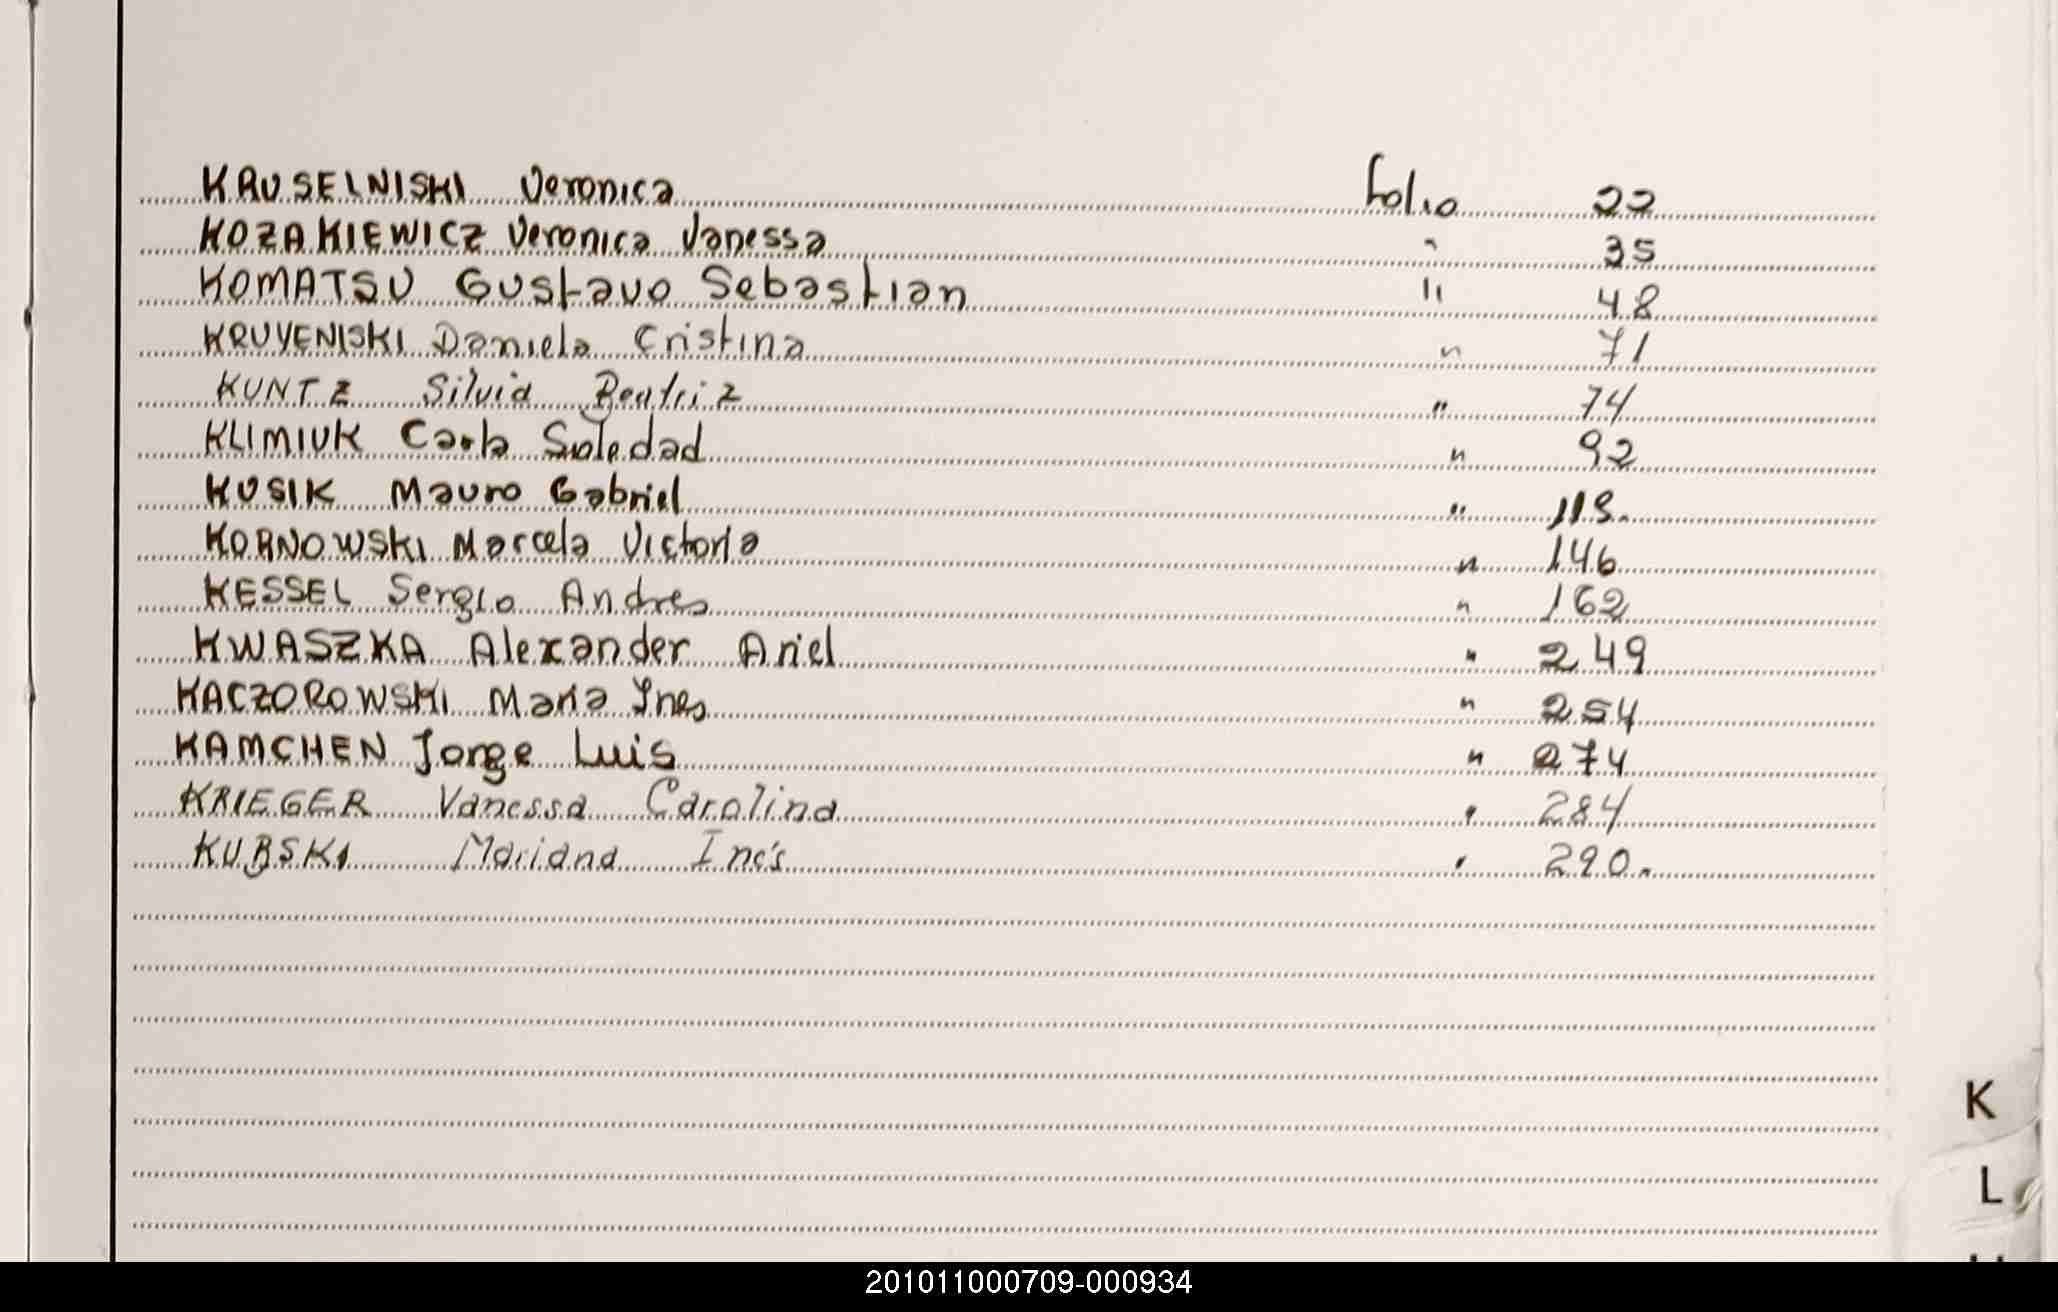 KRUSELNISKI Veronica Folio 22
KOZAKIEWICZ Veronica Vanessa " 35
KOMATSU Gustavo Sebastian " 48
KRUYENISKI Daniela Cristina " 71
KUNTZ Silvia Beatriz " 74
KLIMIUK Carla Soledad " 92
KUSIK Mauro Gabriel "
KORNOWSKI Marcela Victoria " 146
KESSEL Sergio Andres " 162
KWASZKA Alexander Ariel " 249
KACZOROWSKI Maria Ines " 254
KAMCHEN Jorge Luis " 274
KRIEGER Vanessa Carolina " 284
KUBSKI Mariana Inés " 290.
K
L
201011000709-000934